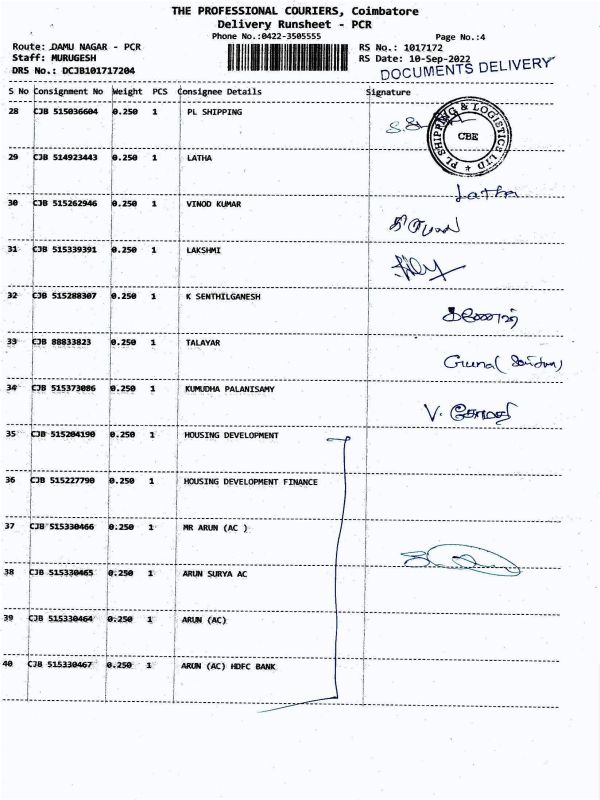 THE PROFESSIONAL COURIERS, Coimbatore
Delivery Runsheet - PCR
Phone No.:0422-3505555 Page No.:4
Route: DAMU NAGAR - PCR RS No.: 1017172
Staff: MURUGESH RS Date: 10-Sep-2022
DRS No.: DCJB101717204 DOCUMENTS DELIVERY
S No Consignment No Weight PCS Consignee Details Signature
28 CJB 515036604 0.250 1 PL SHIPPING
PL SHIPPING & LOGISTICS LTD
CBE
29 CJB 514923443 0.250 1 LATHA
Latha
30 CJB 515262946 0.250 1 VINOD KUMAR
31 CJB 515339391 0.250 1 LAKSHMI
32 CJB 515288307 0.250 1 K SENTHILGANESH
33 CJB 88833823 0.250 1 TALAYAR
Guna
34 CJB 515373086 0.250 1 KUMUDHA PALANISAMY
V.
35 CJB 515204190 0.250 1 HOUSING DEVELOPMENT
36 CJB 515227790 0.250 1 HOUSING DEVELOPMENT FINANCE
37 CJB 515330466 0.250 1 MR ARUN (AC )
38 CJB 515330465 0.250 1 ARUN SURYA AC
39 CJB 515330464 0.250 1 ARUN (AC)
40 CJB 515330467 0.250 1 ARUN (AC) HDFC BANK